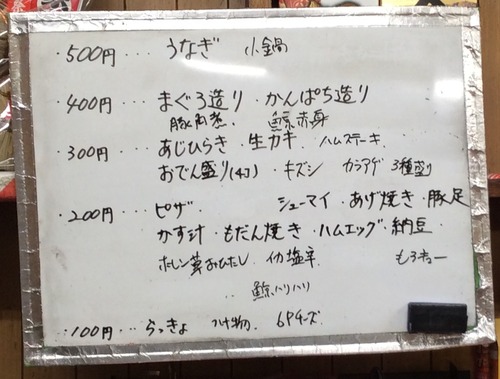 ・500円・・・うなぎ 小鍋
・400円・・・まぐろ造り・かんぱち造り
豚肉煮・鯨赤身
・300円・・・あじひらき・生カキ・ハムステーキ・
おでん盛り(4コ)・キズシ カラアゲ 3種盛り
・200円・・・ピザ・ シューマイ・あげ焼き・豚足
かす汁・もだん焼き・ハムエッグ・納豆
ホーレン草おひたし イカ塩辛 もろきゅー
鯨ハリハリ
・100円・・・らっきょ つけ物・6Pチーズ